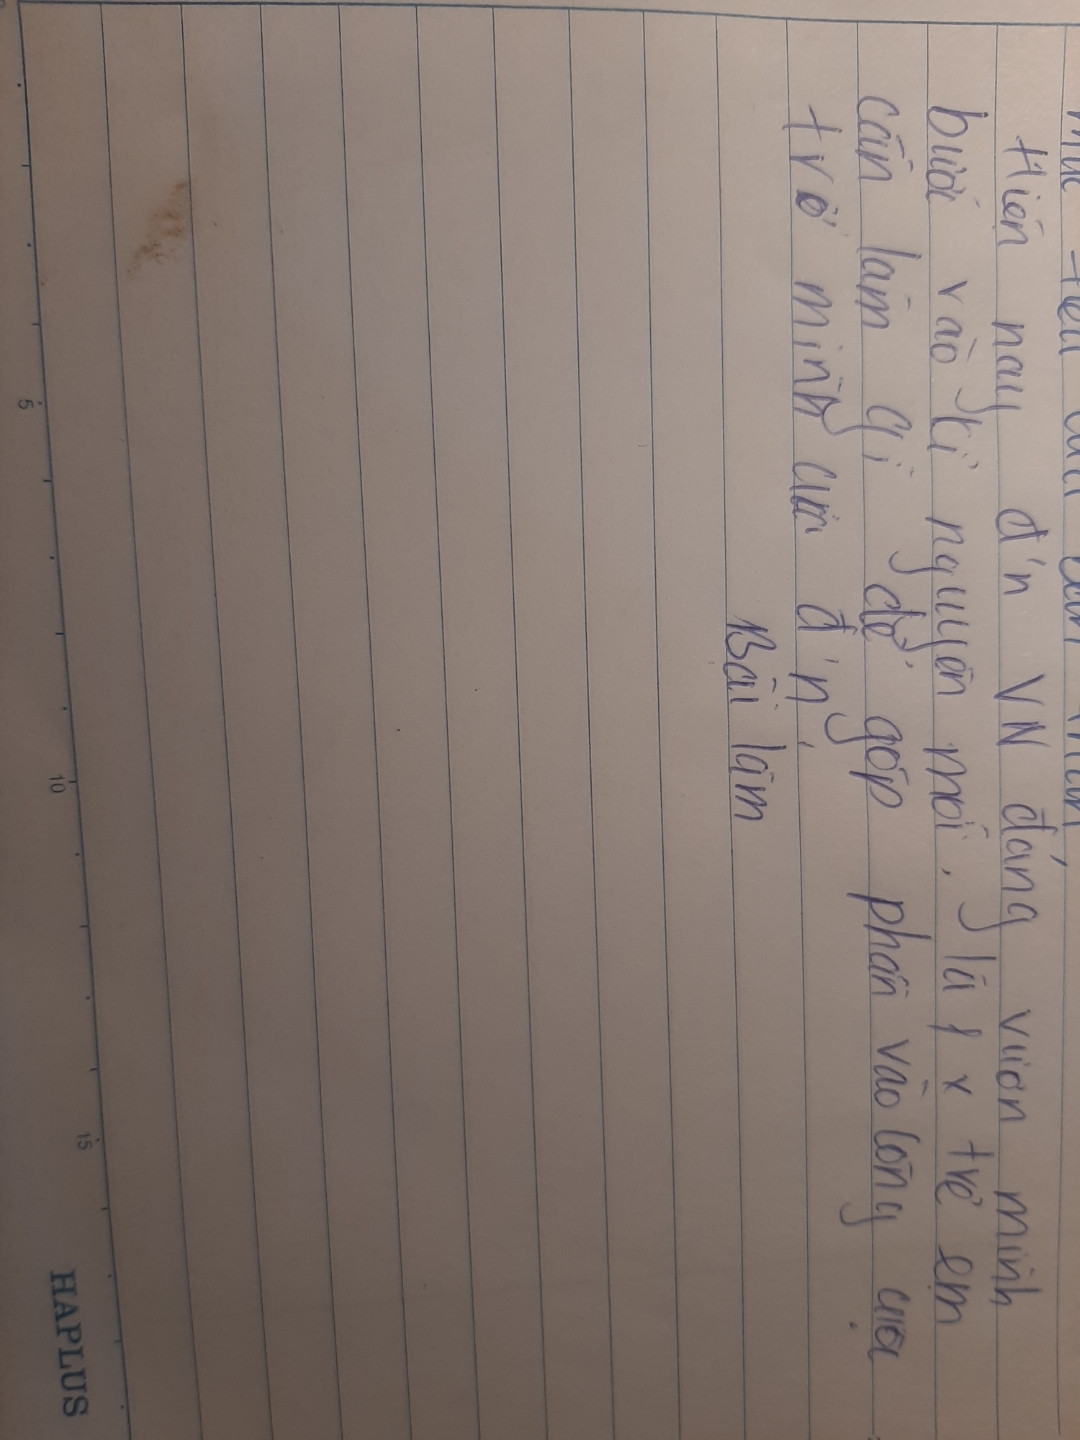 Hiện nay đ'n VN đang vươn mình
bước vào kỉ nguyên mới, là 1 x trẻ em
cần làm gì để góp phần vào công cuộc
trở mình của đ'n,
Bài làm
5
10
15
HAPLUS